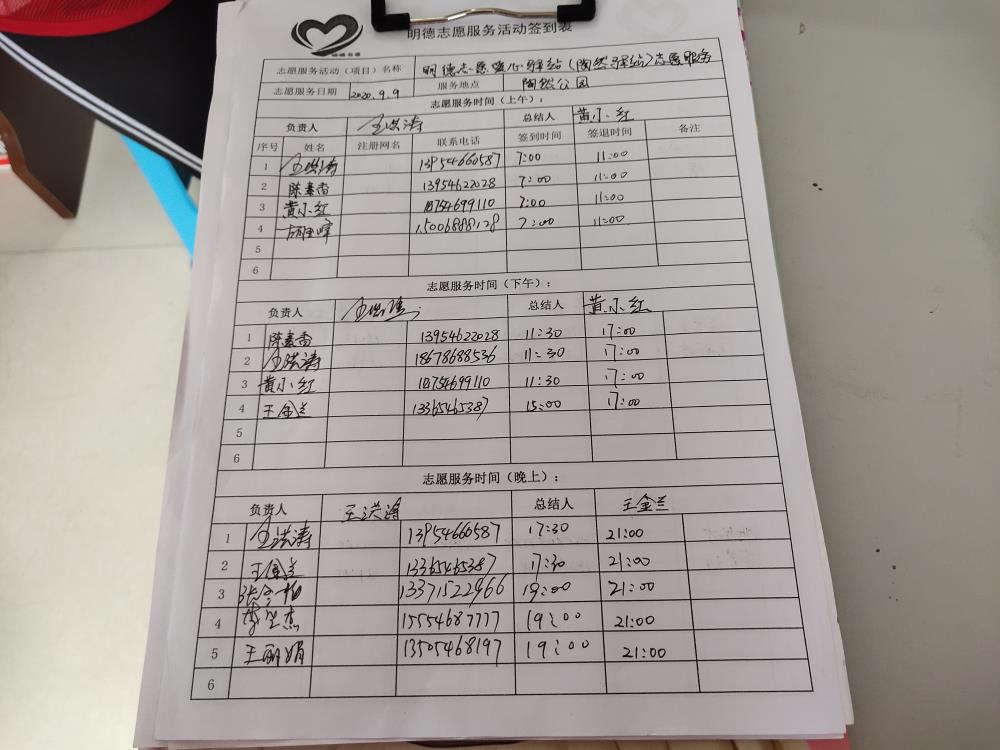 明德志愿服务活动签到表
志愿服务活动（项目）名称 明德志愿爱心驿站（陶然驿站）志愿服务
志愿服务日期 2020.9.9 服务地点 陶然公园
志愿服务时间（上午）：
负责人 王洪涛 总结人 黄小红
序号 姓名 注册网名 联系电话 签到时间 签退时间 备注
1 王洪涛 13954660587 7:00 11:00
2 陈素香 13954622028 7:00 11:00
3 黄小红 18754699110 7:00 11:00
4 15006888128 7:00 11:00
5
6
志愿服务时间（下午）：
负责人 王洪涛 总结人 黄小红
1 陈素香 13954622028 11:30 17:00
2 王洪涛 18678688536 11:30 17:00
3 黄小红 18754699110 11:30 17:00
4 王金兰 13365465387 15:00 17:00
5
6
志愿服务时间（晚上）：
负责人 王洪涛 总结人 王金兰
1 王洪涛 13954660587 17:30 21:00
2 王金兰 13365465387 17:30 21:00
3 13371522966 19:00 21:00
4 15554687777 19:00 21:00
5 王丽娟 13505468197 19:00 21:00
6